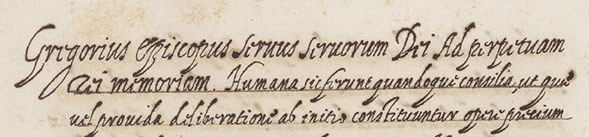 Gregorius Episcopus Servus Servorum Dei Ad perpetuam
rei memoriam. Humana sic ferunt quandoque consilia, ut que
vel provida deliberatione ab initio constituuntur opere precium